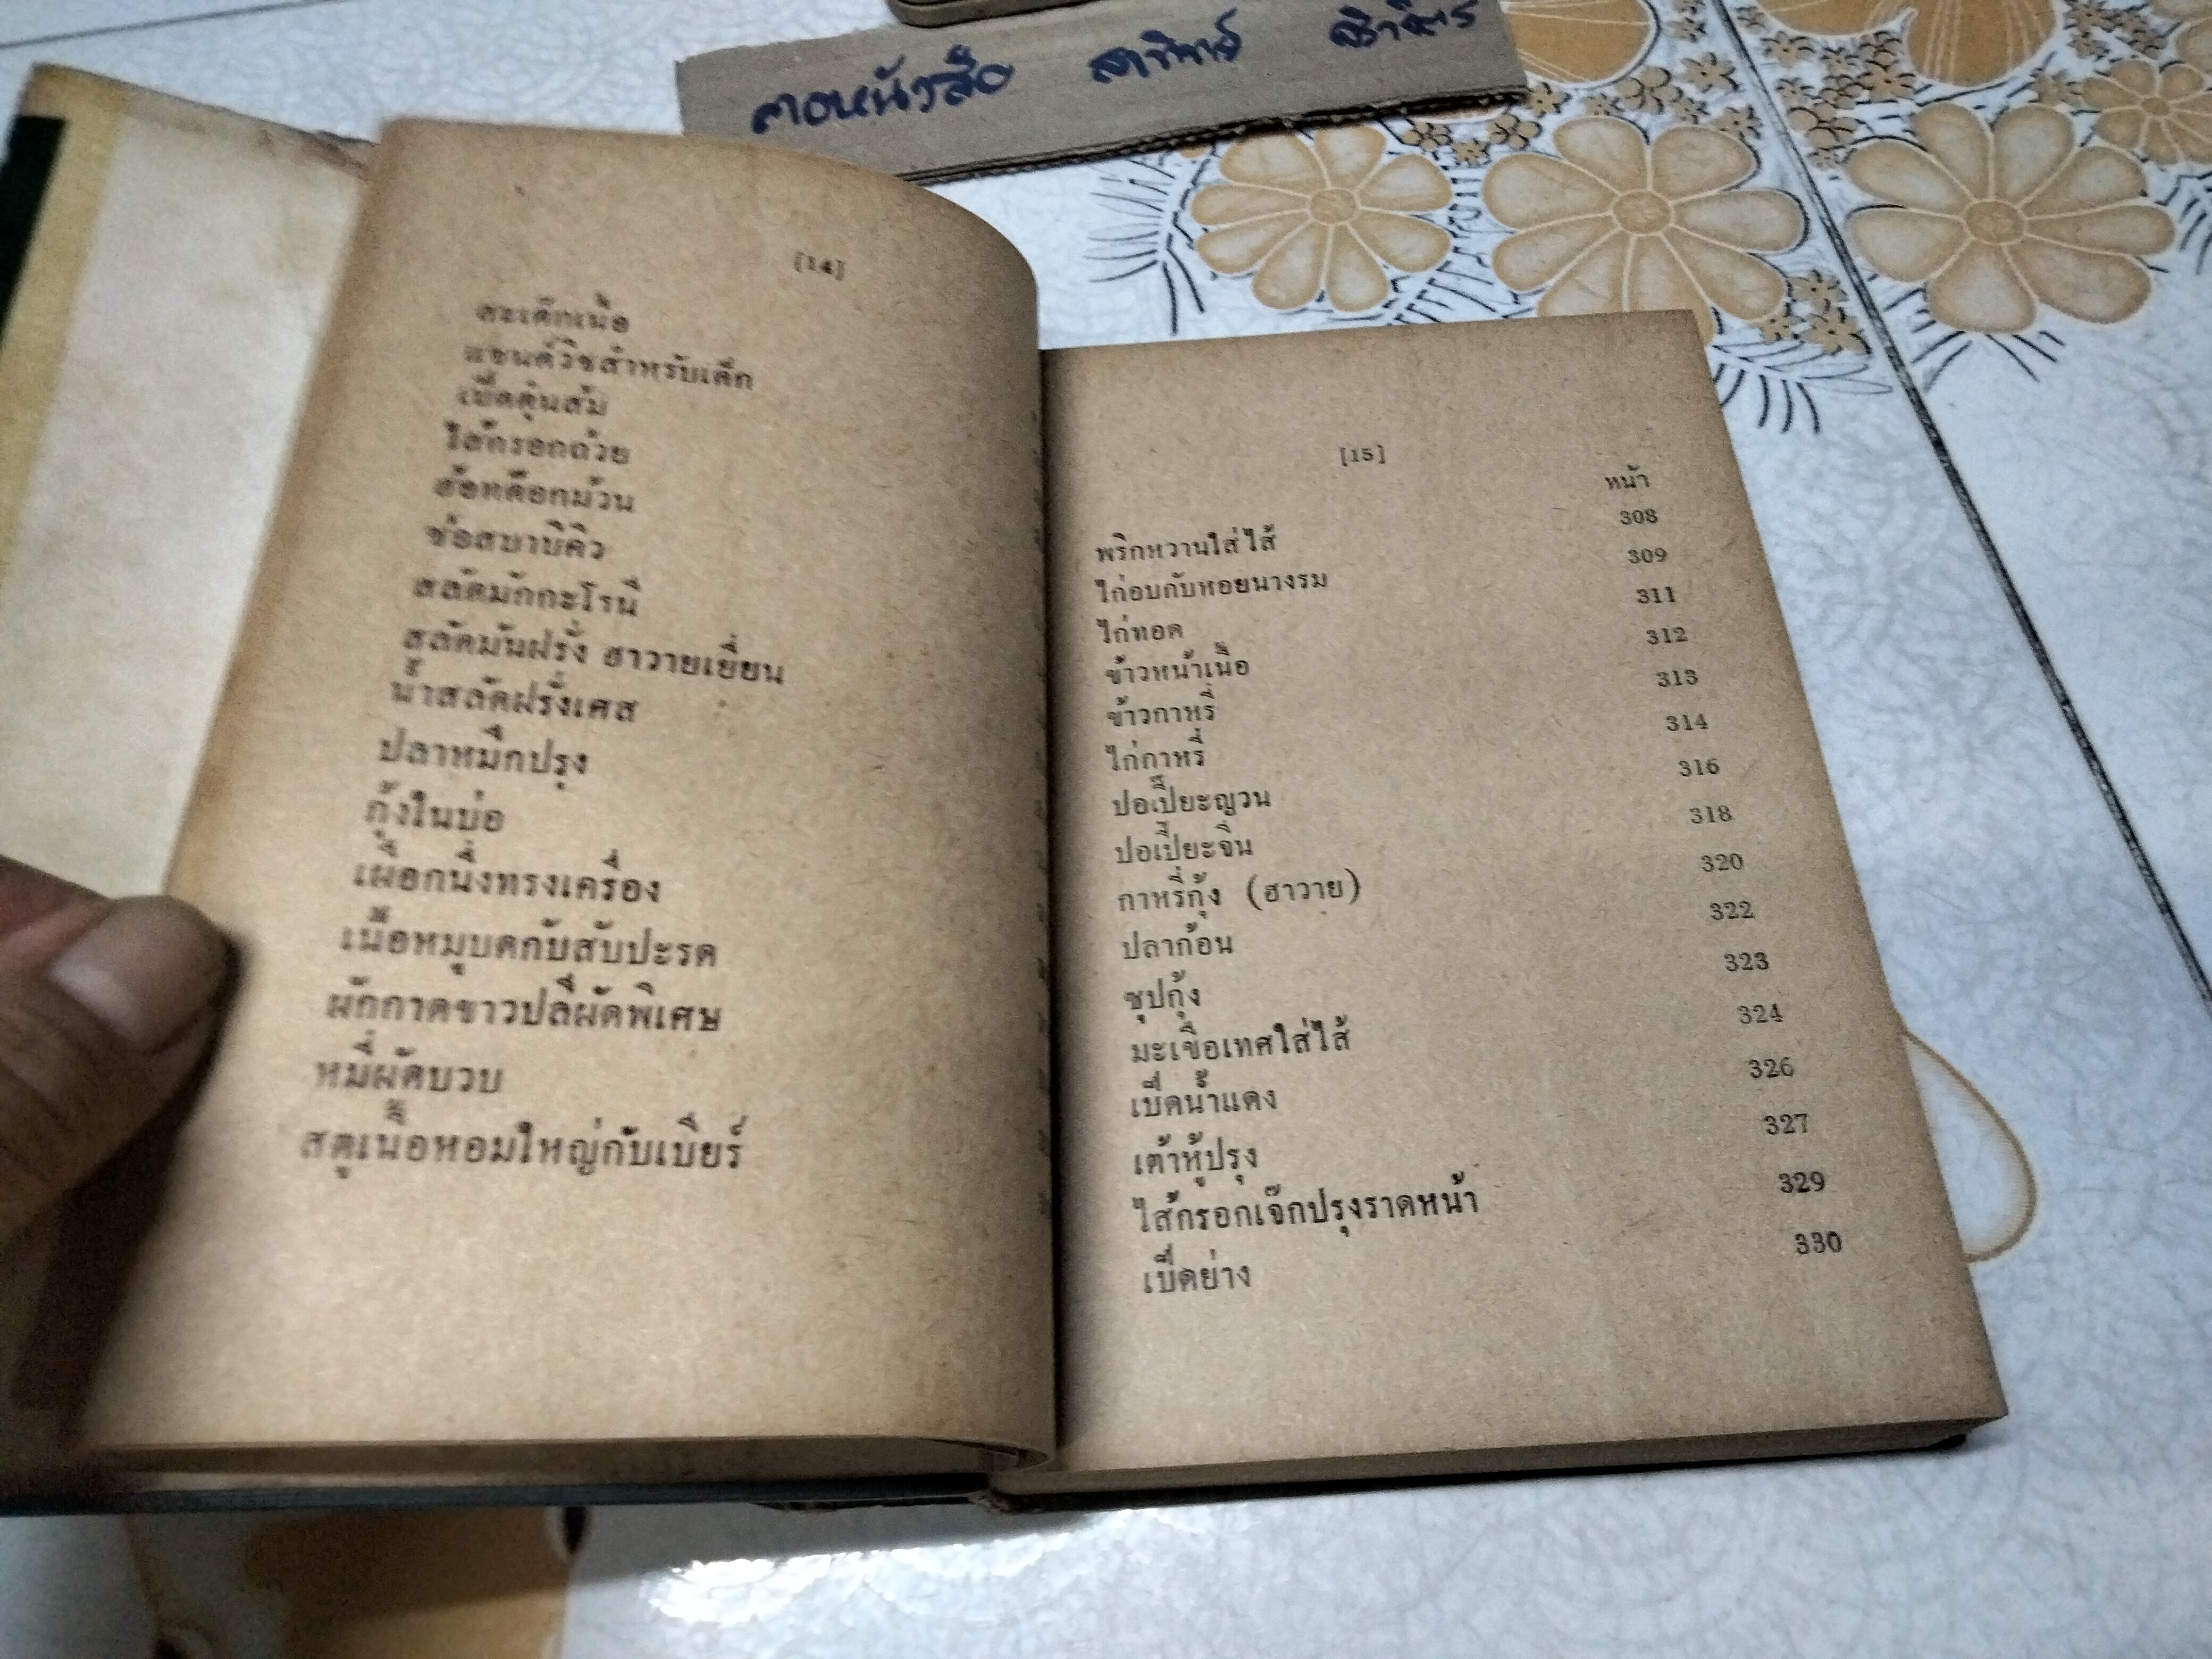 [14]
สะเต๊กเนื้อ
แซนด์วิชสำหรับเด็ก
เป็ดตุ๋นส้ม
ไส้กรอกถ้วย
ฮ๊อทด๊อกม้วน
ซ๊อสบาบีคิว
สลัดมักกะโรนี
สลัดมันฝรั่ง ฮาวายเยี่ยน
น้ำสลัดฝรั่งเศส
ปลาหมึกปรุง
กุ้งในบ่อ
เผือกนึ่งทรงเครื่อง
เนื้อหมูบดกับสับปะรด
ผักกาดขาวปลีผัดพิเศษ
หมี่ผัดบวบ
สตูเนื้อหอมใหญ่กับเบียร์
[15]
หน้า
พริกหวานใส่ไส้ 308
ไก่อบกับหอยนางรม 309
ไก่ทอด 311
ข้าวหน้าเนื้อ 312
ข้าวกาหรี่ 313
ไก่กาหรี่ 314
ปอเปี๊ยะญวน 316
ปอเปี๊ยะจีน 318
กาหรี่กุ้ง (ฮาวาย) 320
ปลาก้อน 322
ซุปกุ้ง 323
มะเขือเทศใส่ไส้ 324
เป็ดน้ำแดง 326
เต้าหู้ปรุง 327
ไส้กรอกเจ๊กปรุงราดหน้า 329
เป็ดย่าง 330